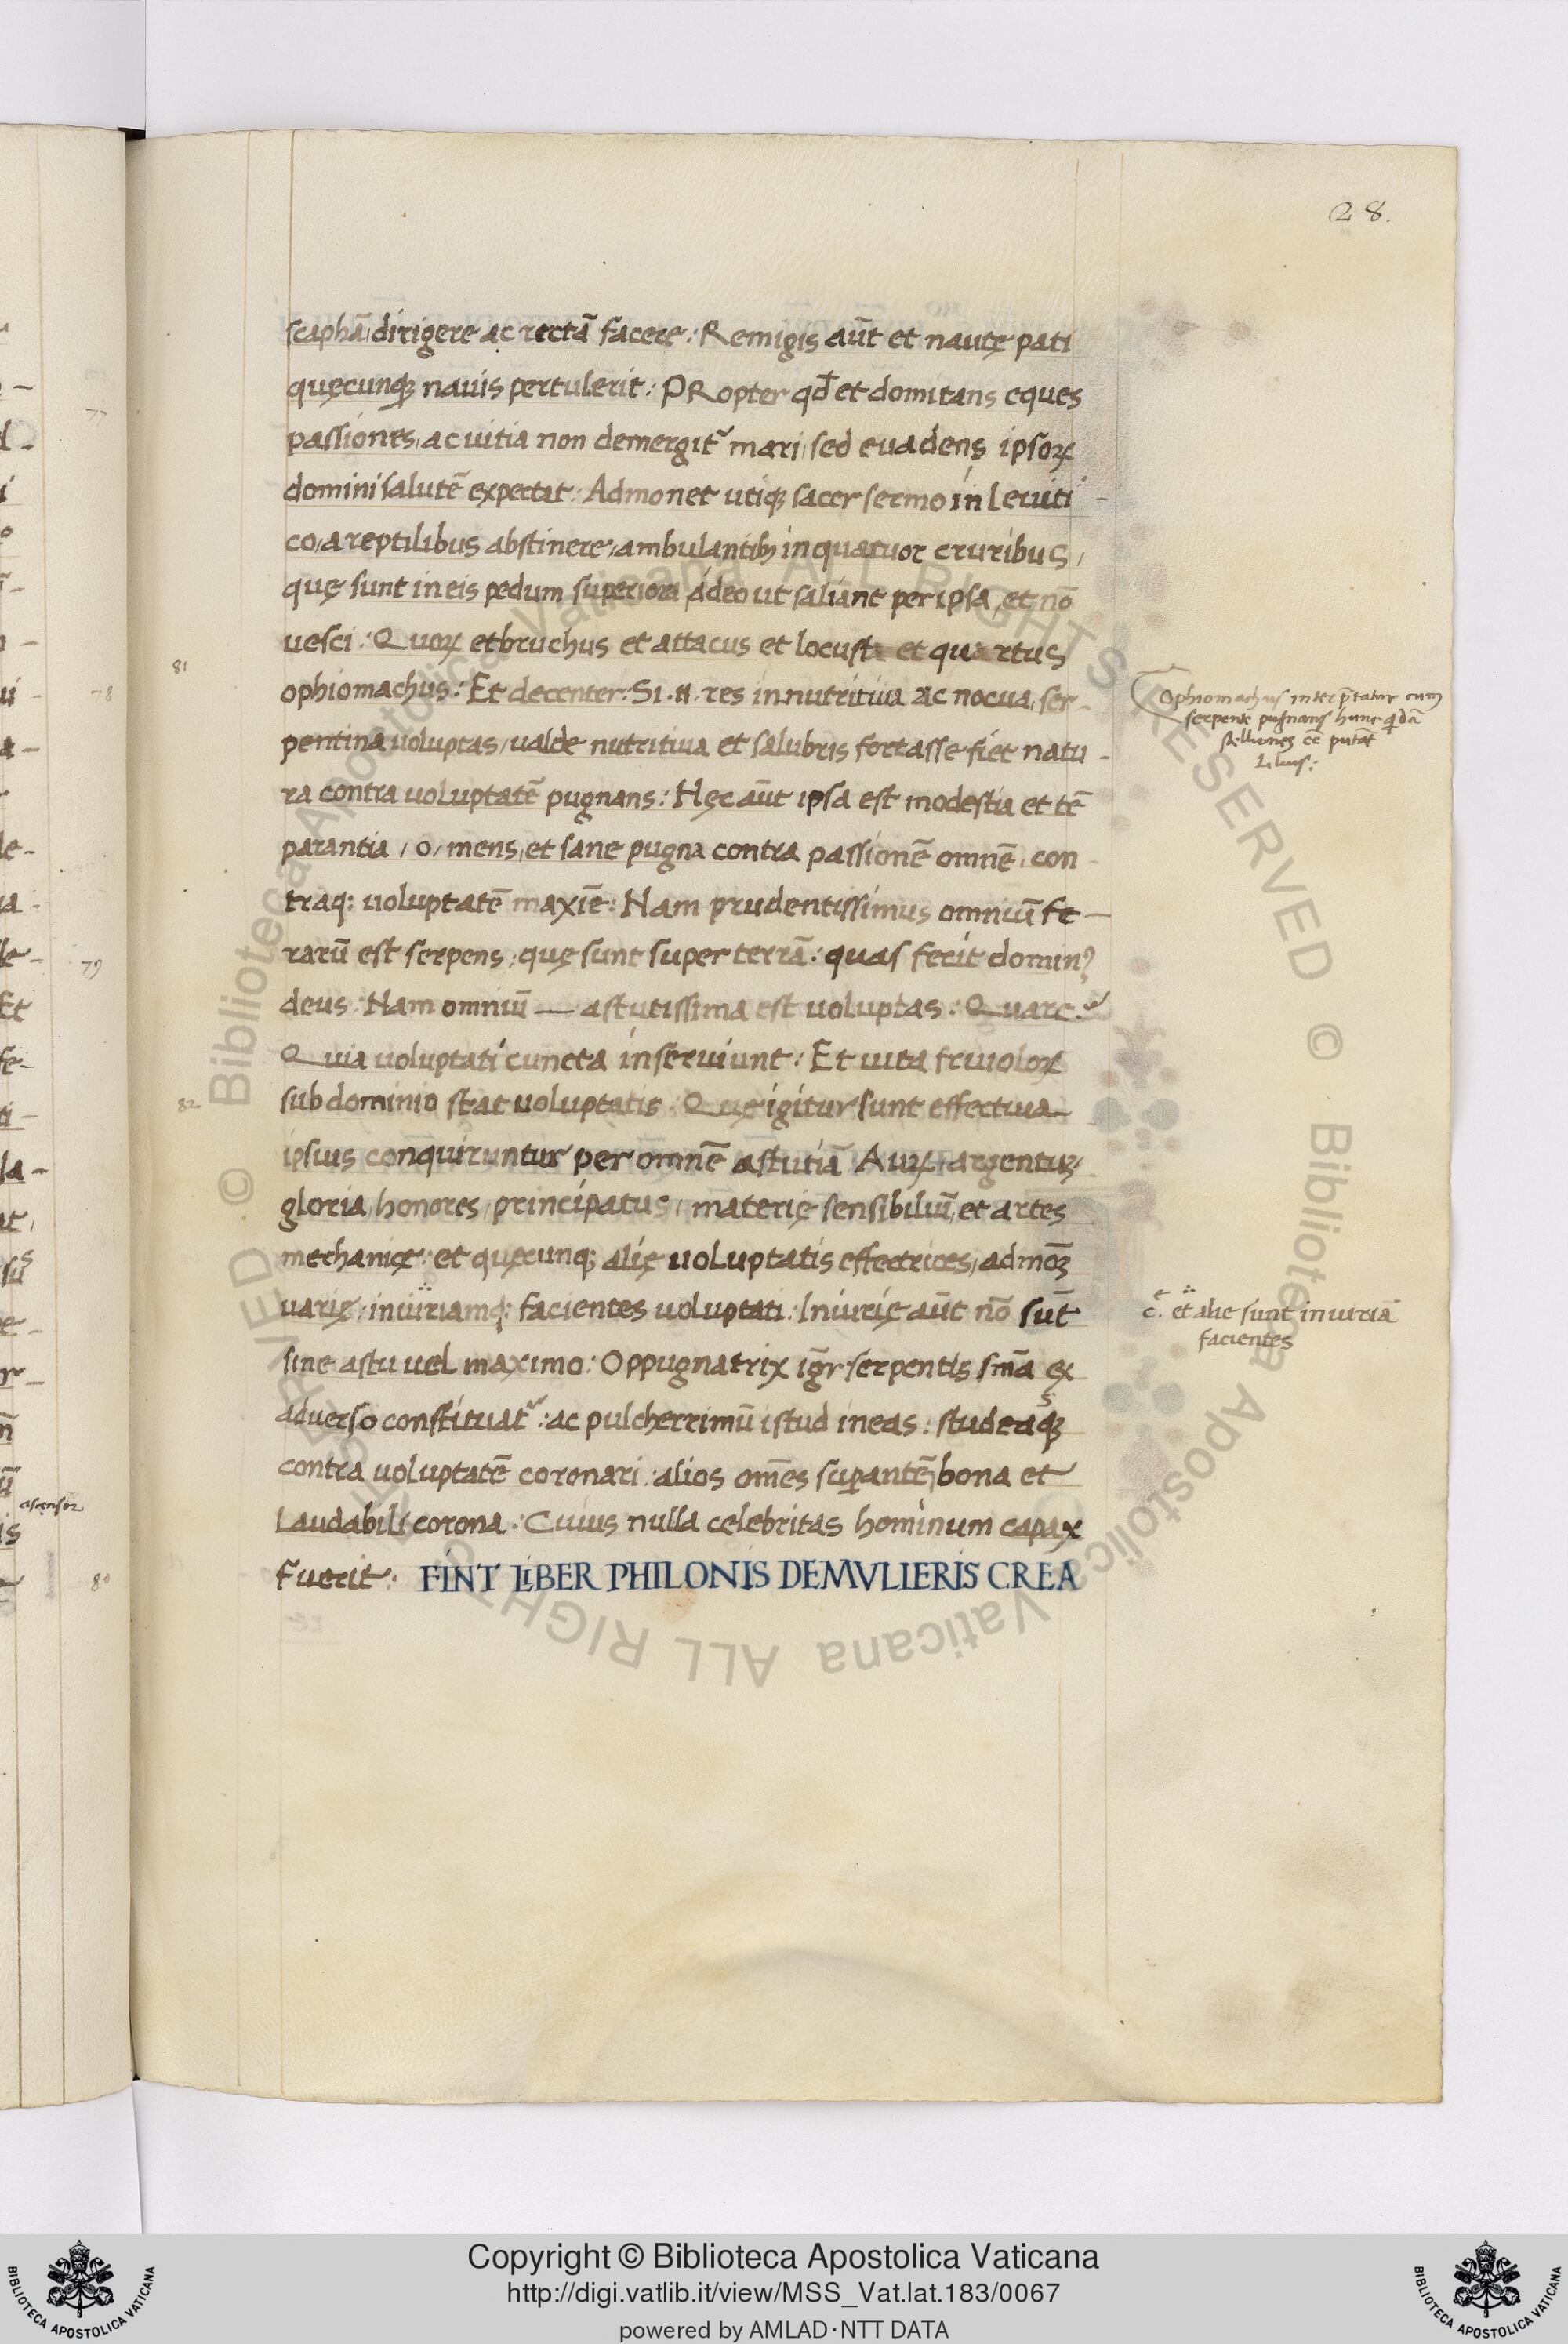 28.
scaphā dirigere ac rectā facere: Remigis aūt et nautę pati
quęcunqꝫ nauis pertulerit: PRopter qđ et domitans eques
passiones, ac uitia non demergit᷑ mari, sed euadens ipsoꝝ
domini salutē expectat: Admonet utiqꝫ sacer sermo in Leuiti-
co, a reptilibus abstinere, ambulantibꝫ in quatuor cruribus,
quę sunt in eis pedum superiora, ádeo ut saliant per ipsa, et nō
uesci: Quoꝝ et bruchus et attacus et locusta et quartus
ophiomachus: Et decenter: Si .n. res innutritiua ac nocua, ser-
pentina uoluptas, ualde nutritiua et salubris fortasse fiet natu-
ra contra uoluptatē pugnans: Hęc aūt ipsa est modestia et tē
parantia, o, mens, et sane pugna contra passionē omnē, con-
traq: uoluptatē maxīē: Nam prudentissimus omniū fe-
rarū est serpens, quę sunt super terrā: quas fecit dominꝰ
deus: Nam omniū — astutissima est uoluptas: Quare?
Quia uoluptati cuncta inseruiunt: Et uita friuoloꝝ
sub dominio stat uoluptatis. Quę igitur sunt effectiua
ipsius conquiruntur per omnē astutiā Auꝝ, argentuꝫ,
gloria, honores, principatus, materię sensibiliū, et artes
mechanicę: et quęcunqꝫ alię uoluptatis effectrices, admoꝫ
uarię: iniuriamq: facientes uoluptati: Iniurię aūt nō sūt
sine astu uel maximo: Oppugnatrix igr̄ serpentis sm̄a ex
aduerso constituat᷑: ac pulcherrimū istud ineas: studeasqꝫ
contra uoluptatē coronari: alios om̄es suꝑantē, bona et
laudabili corona: Cuius nulla celebritas hominum capax
fuerit: FINT LIBER PHILONIS DE MVLIERIS CREA
Ophiomachus interp̄tatur cum
serpente pugnans hunc q̄dā
stelliones eē putāt
Lilius:
c. et alie sunt iniuriā
facientes
77
78
79
80
81
82
ascensor
© Biblioteca Apostolica Vaticana ALL RIGHTS RESERVED © Biblioteca Apostolica Vaticana ALL RIGHTS RESERVED
Copyright © Biblioteca Apostolica Vaticana
http://digi.vatlib.it/view/MSS_Vat.lat.183/0067
powered by AMLAD·NTT DATA
BIBLIOTECA APOSTOLICA VATICANA
BIBLIOTECA APOSTOLICA VATICANA